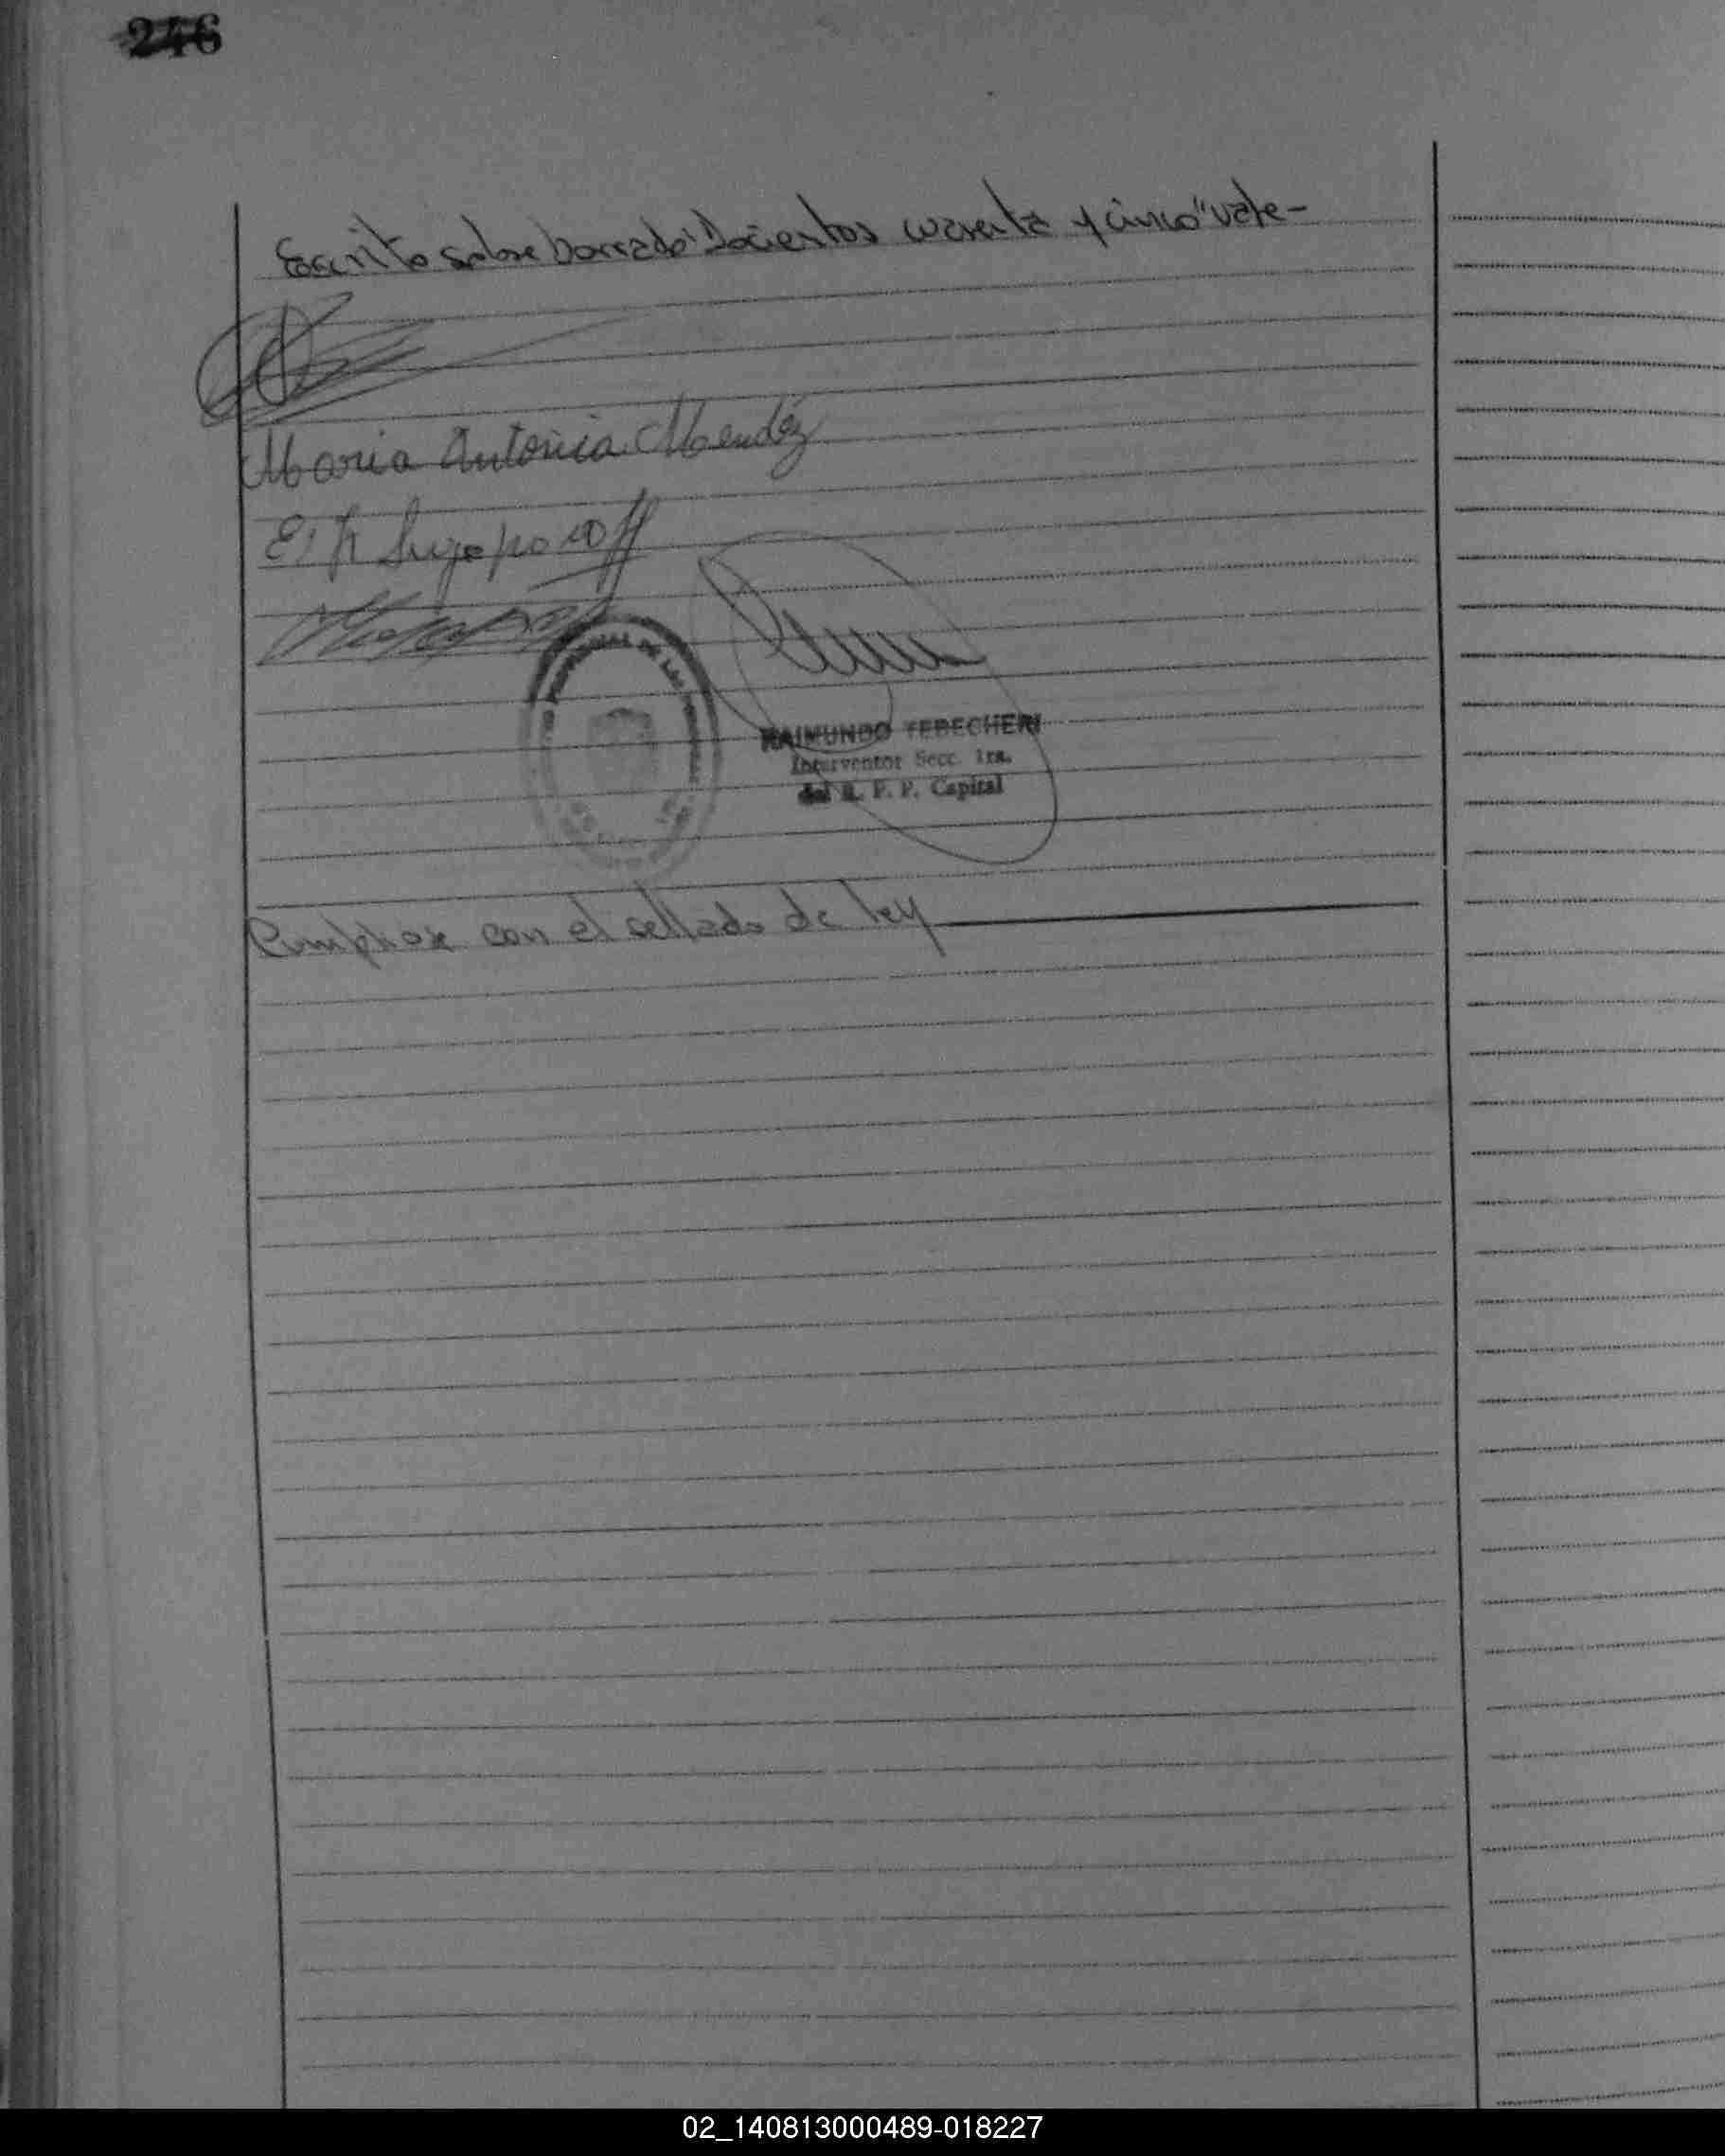 246
Escrito sobre borrado "Docientos cuarenta y cinco" vale-
Maria Antonia Mendéz
DE LAS
RAIMUNDO TEBECHERI
Interventor Secc. 1ra.
del R. P. P. Capital
Cumpliose con el sellado de ley
02_140813000489-018227